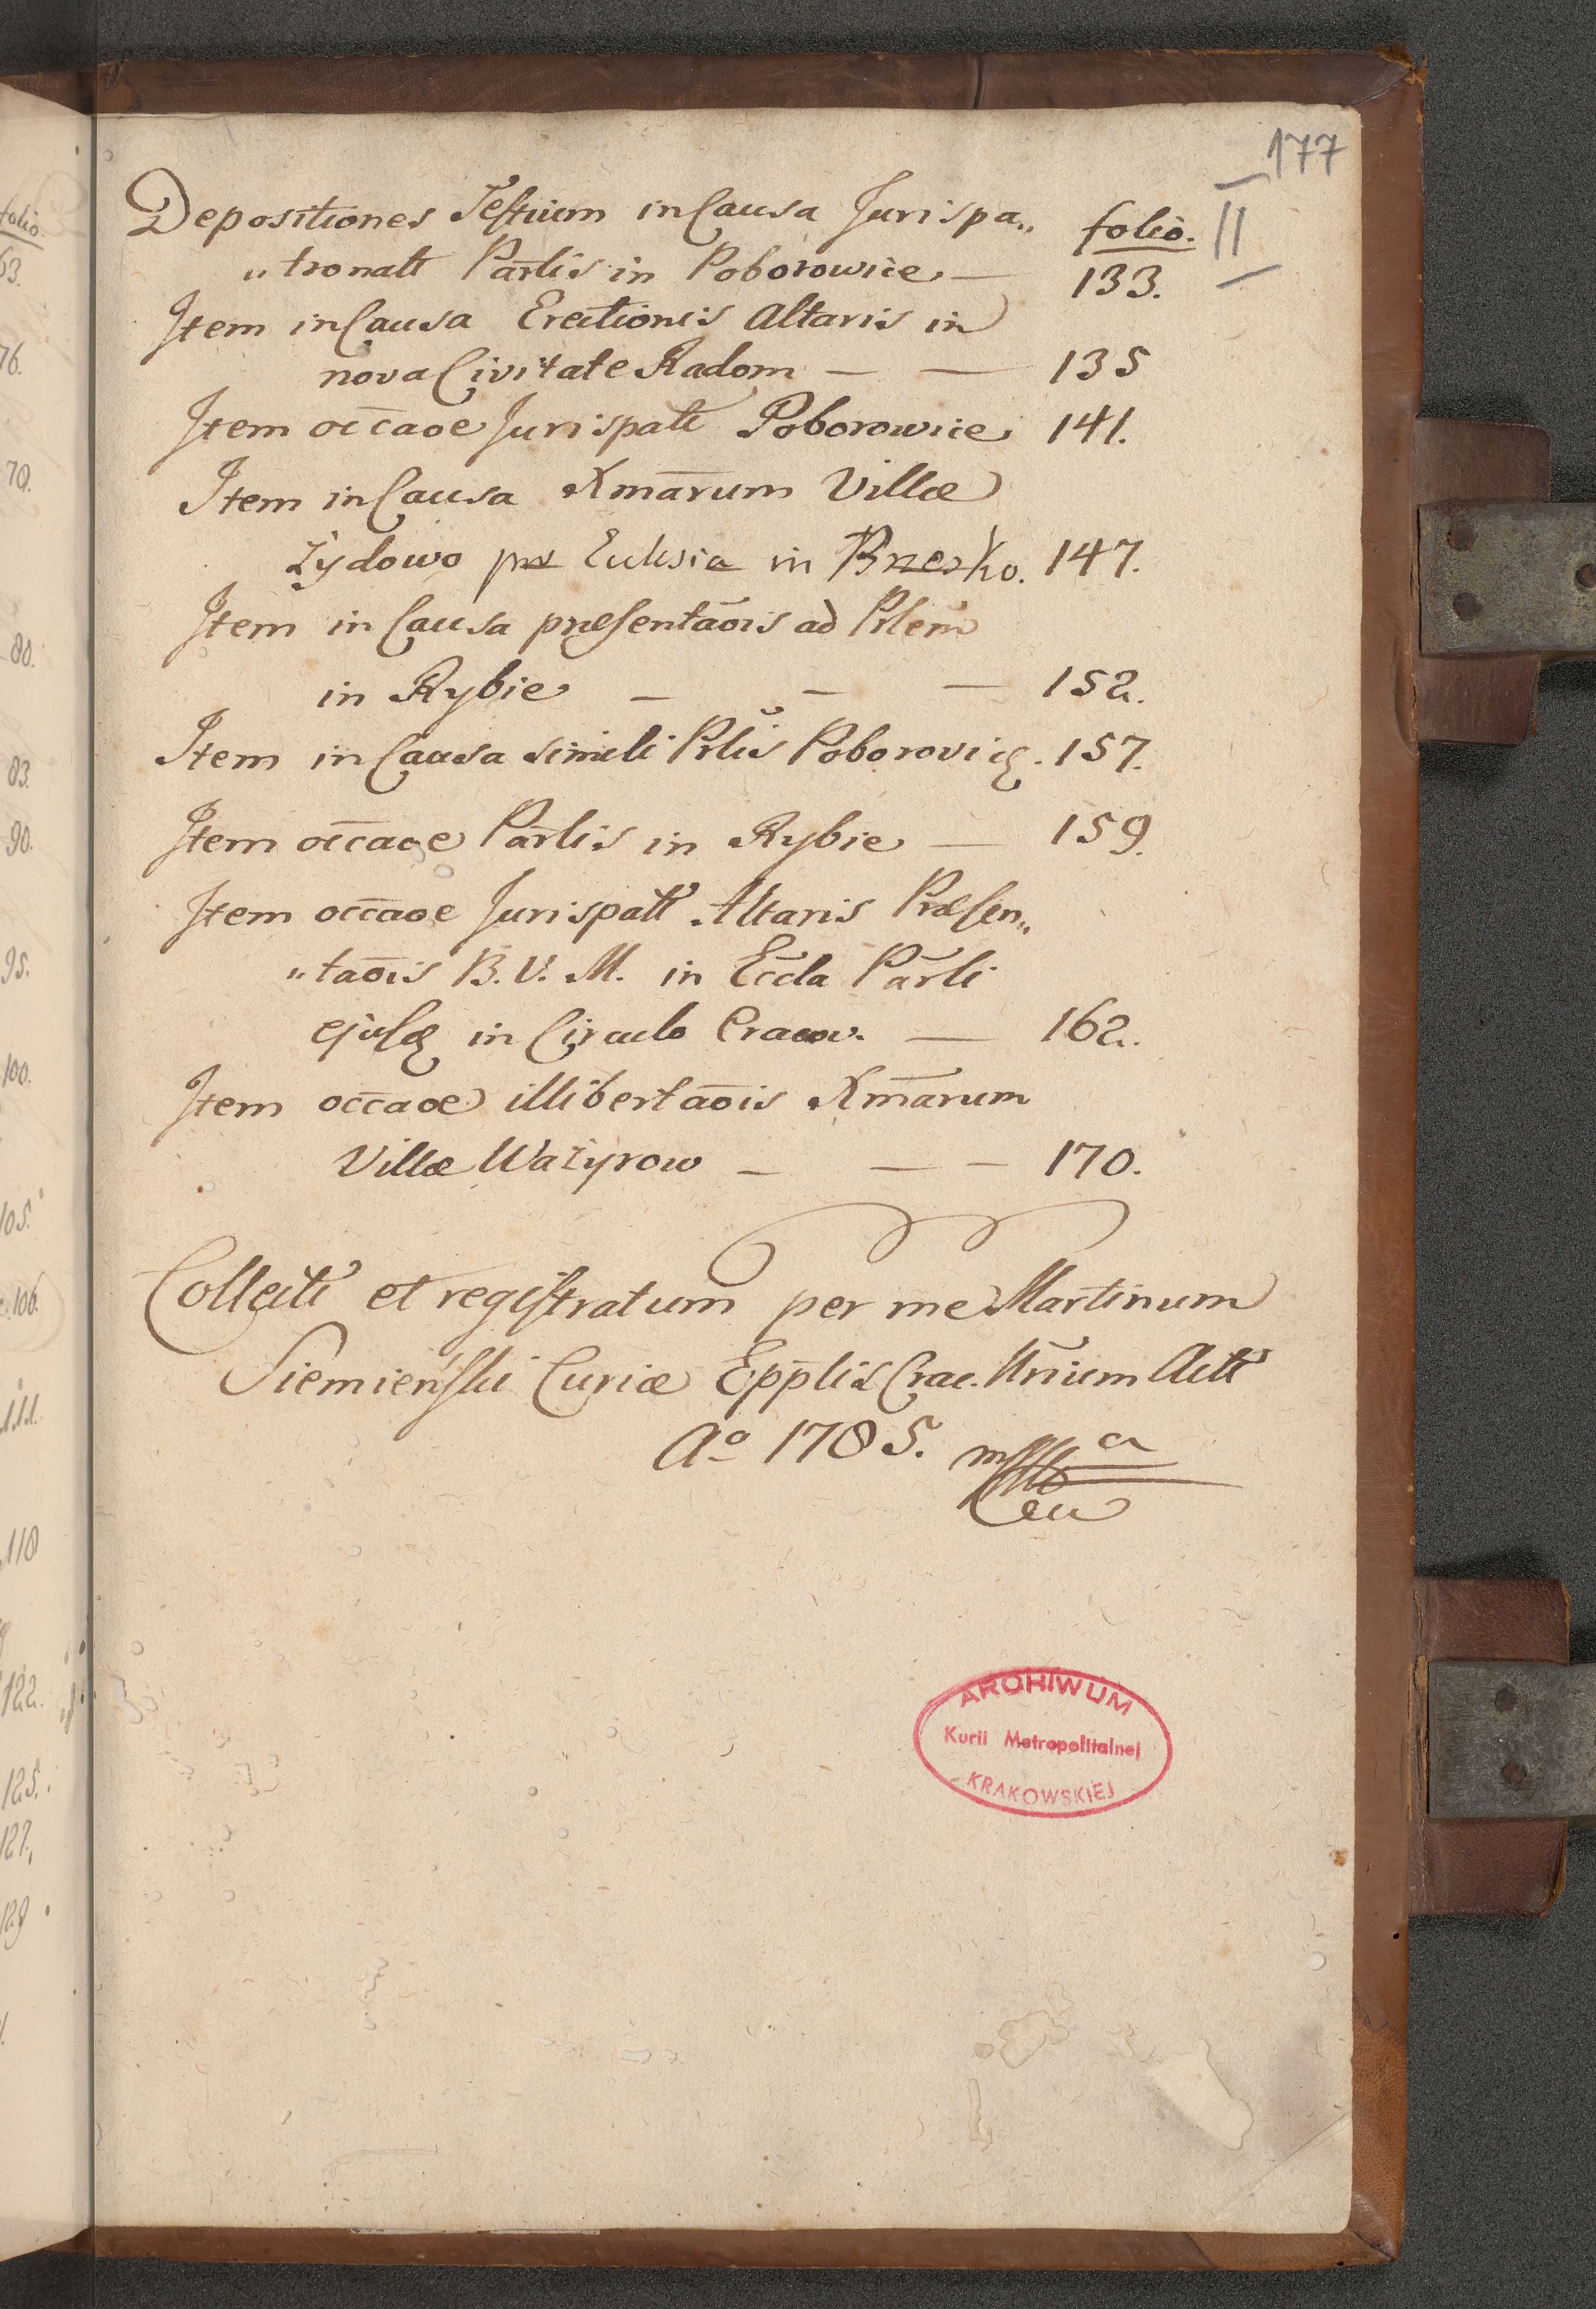 177
II
Depositiones Testium in Causa Jurispa„ folio.
„tronatt Parlis in Poborowice — 133.
Item in Causa Erectionis Altaris in
nova Civitate Radom — — 135
Item occāoe Jurispatt Poborowice 141.
Item in Causa Kmārum Villæ
Żydowo pns Ecclesia in Brzesko. 147.
Item in Causa præsentāois ad Prlem
in Rybie — — — 152.
Item in Causa simili Prlis Poboroviçę. 157.
Item occāoe Parlis in Rybie — 159.
Item occāoe Jurispatt Altaris Præsen„
„tāois B. V. M. in Eccla Parli
ejusd in Circulo Cracov. — 162.
Item occāoe illibertāois Kmārum
Villæ Ważyrow — — — 170.
Collecti et registratum per me Martinum
Siemieński Curiæ Epplis Crac. Nrium Actt
Aº 1785. mp
folio.
63.
76.
79.
80.
83.
90.
95.
100.
105.
106.
111.
118
122.
125.
127.
129.
ARCHIWUM
Kurii Metropolitalnej
KRAKOWSKIEJ